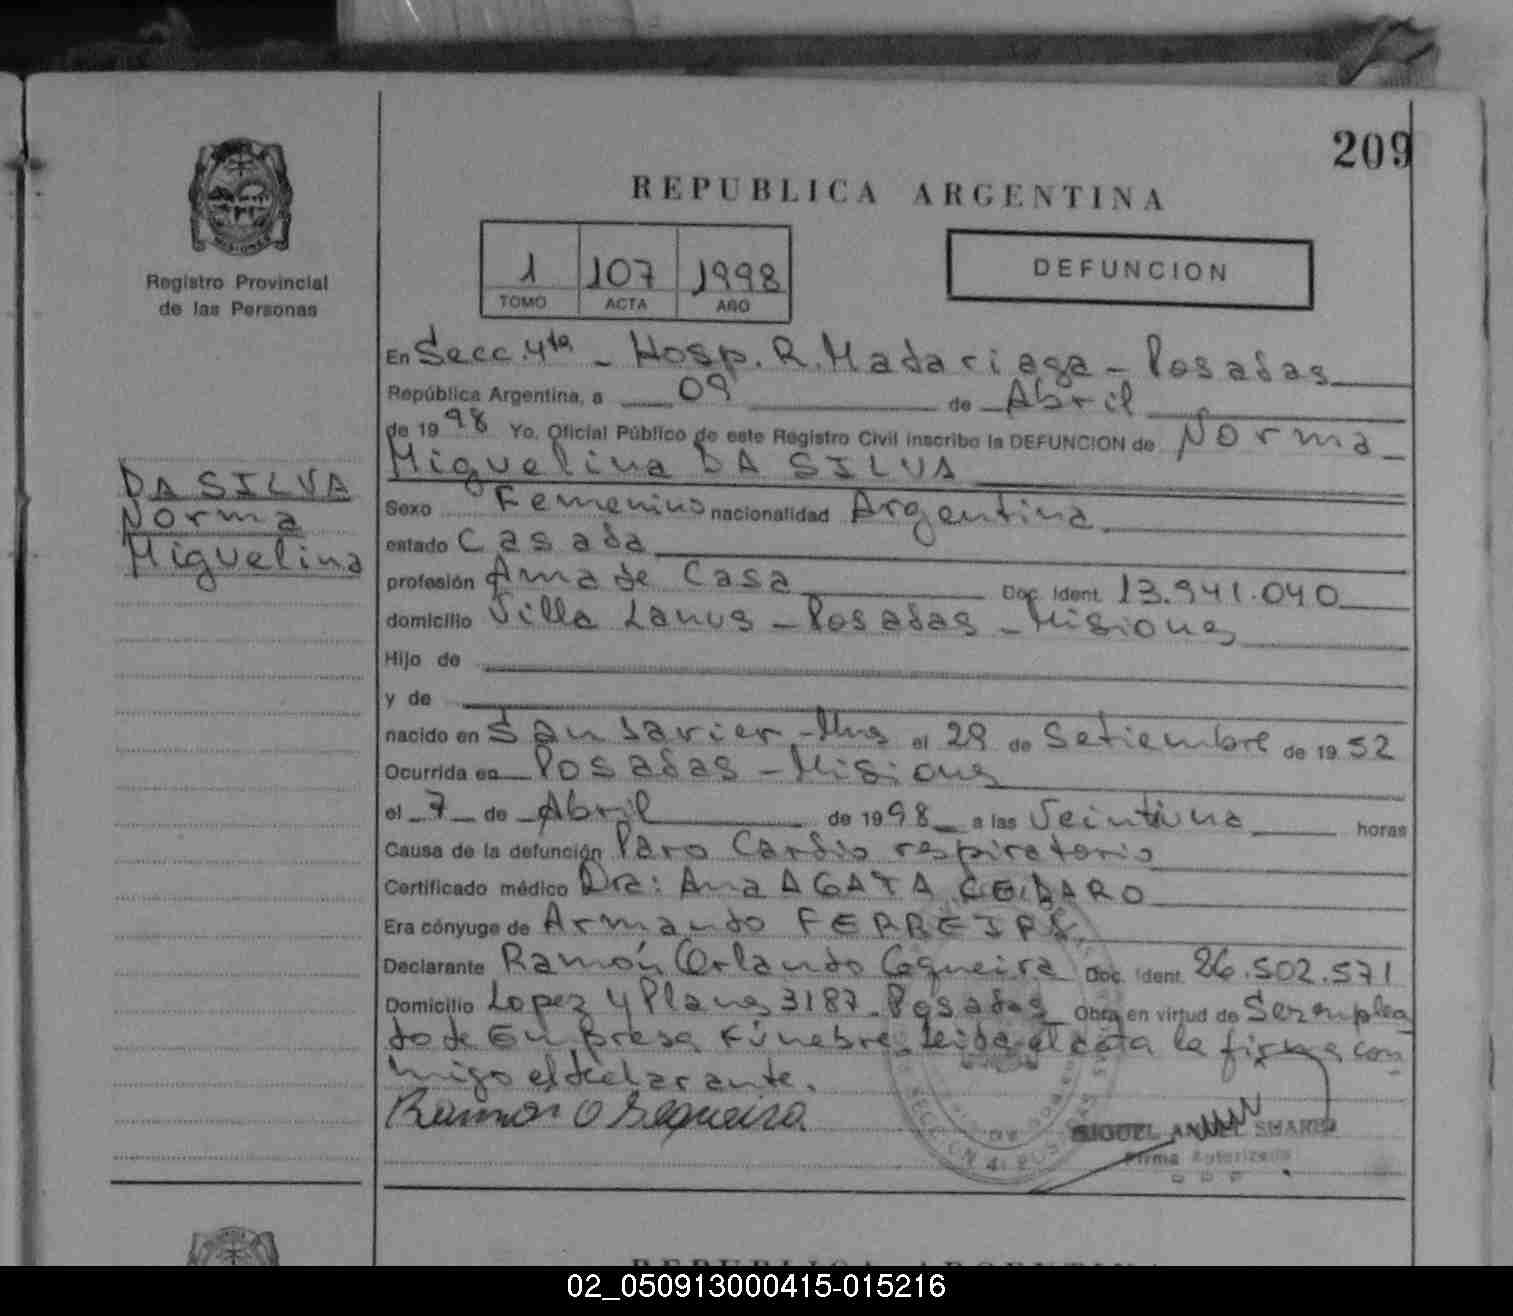 209
REPUBLICA ARGENTINA
MISIONES
Registro Provincial
de las Personas
1 107 1998
TOMO ACTA AÑO
DEFUNCION
En Secc. 4ta - Hosp. R. Madariaga - Posadas
República Argentina, a 09 de Abril
de 1998 Yo, Oficial Público de este Registro Civil inscribo la DEFUNCION de Norma
Miguelina DA SILVA
DA SILVA
Norma
Miguelina
Sexo Femenino nacionalidad Argentina
estado Casada
profesión Ama de Casa Doc. Ident. 13.941.040
domicilio Villa Lanus - Posadas - Misiones
Hijo de
y de
nacido en San Javier - Mnes el 29 de Setiembre de 1952
Ocurrida en Posadas - Misiones
el 7 de Abril de 1998 a las Veintiuna horas
Causa de la defunción Paro Cardio respiratorio
Certificado médico Dra: Ana AGATA
Era cónyuge de Armando FERREIRA
Declarante Ramón Orlando Doc. Ident. 26.502.571
Domicilio Lopez y Planes 3187 - Posadas Obra en virtud de Ser emplea
do de Empresa Fúnebre. Leida el acta la firma con
migo el declarante.
Ramón O Sequeira
SECCION 4 POSADAS
MIGUEL ANGEL SUAREZ
Firma Autorizada
02_050913000415-015216